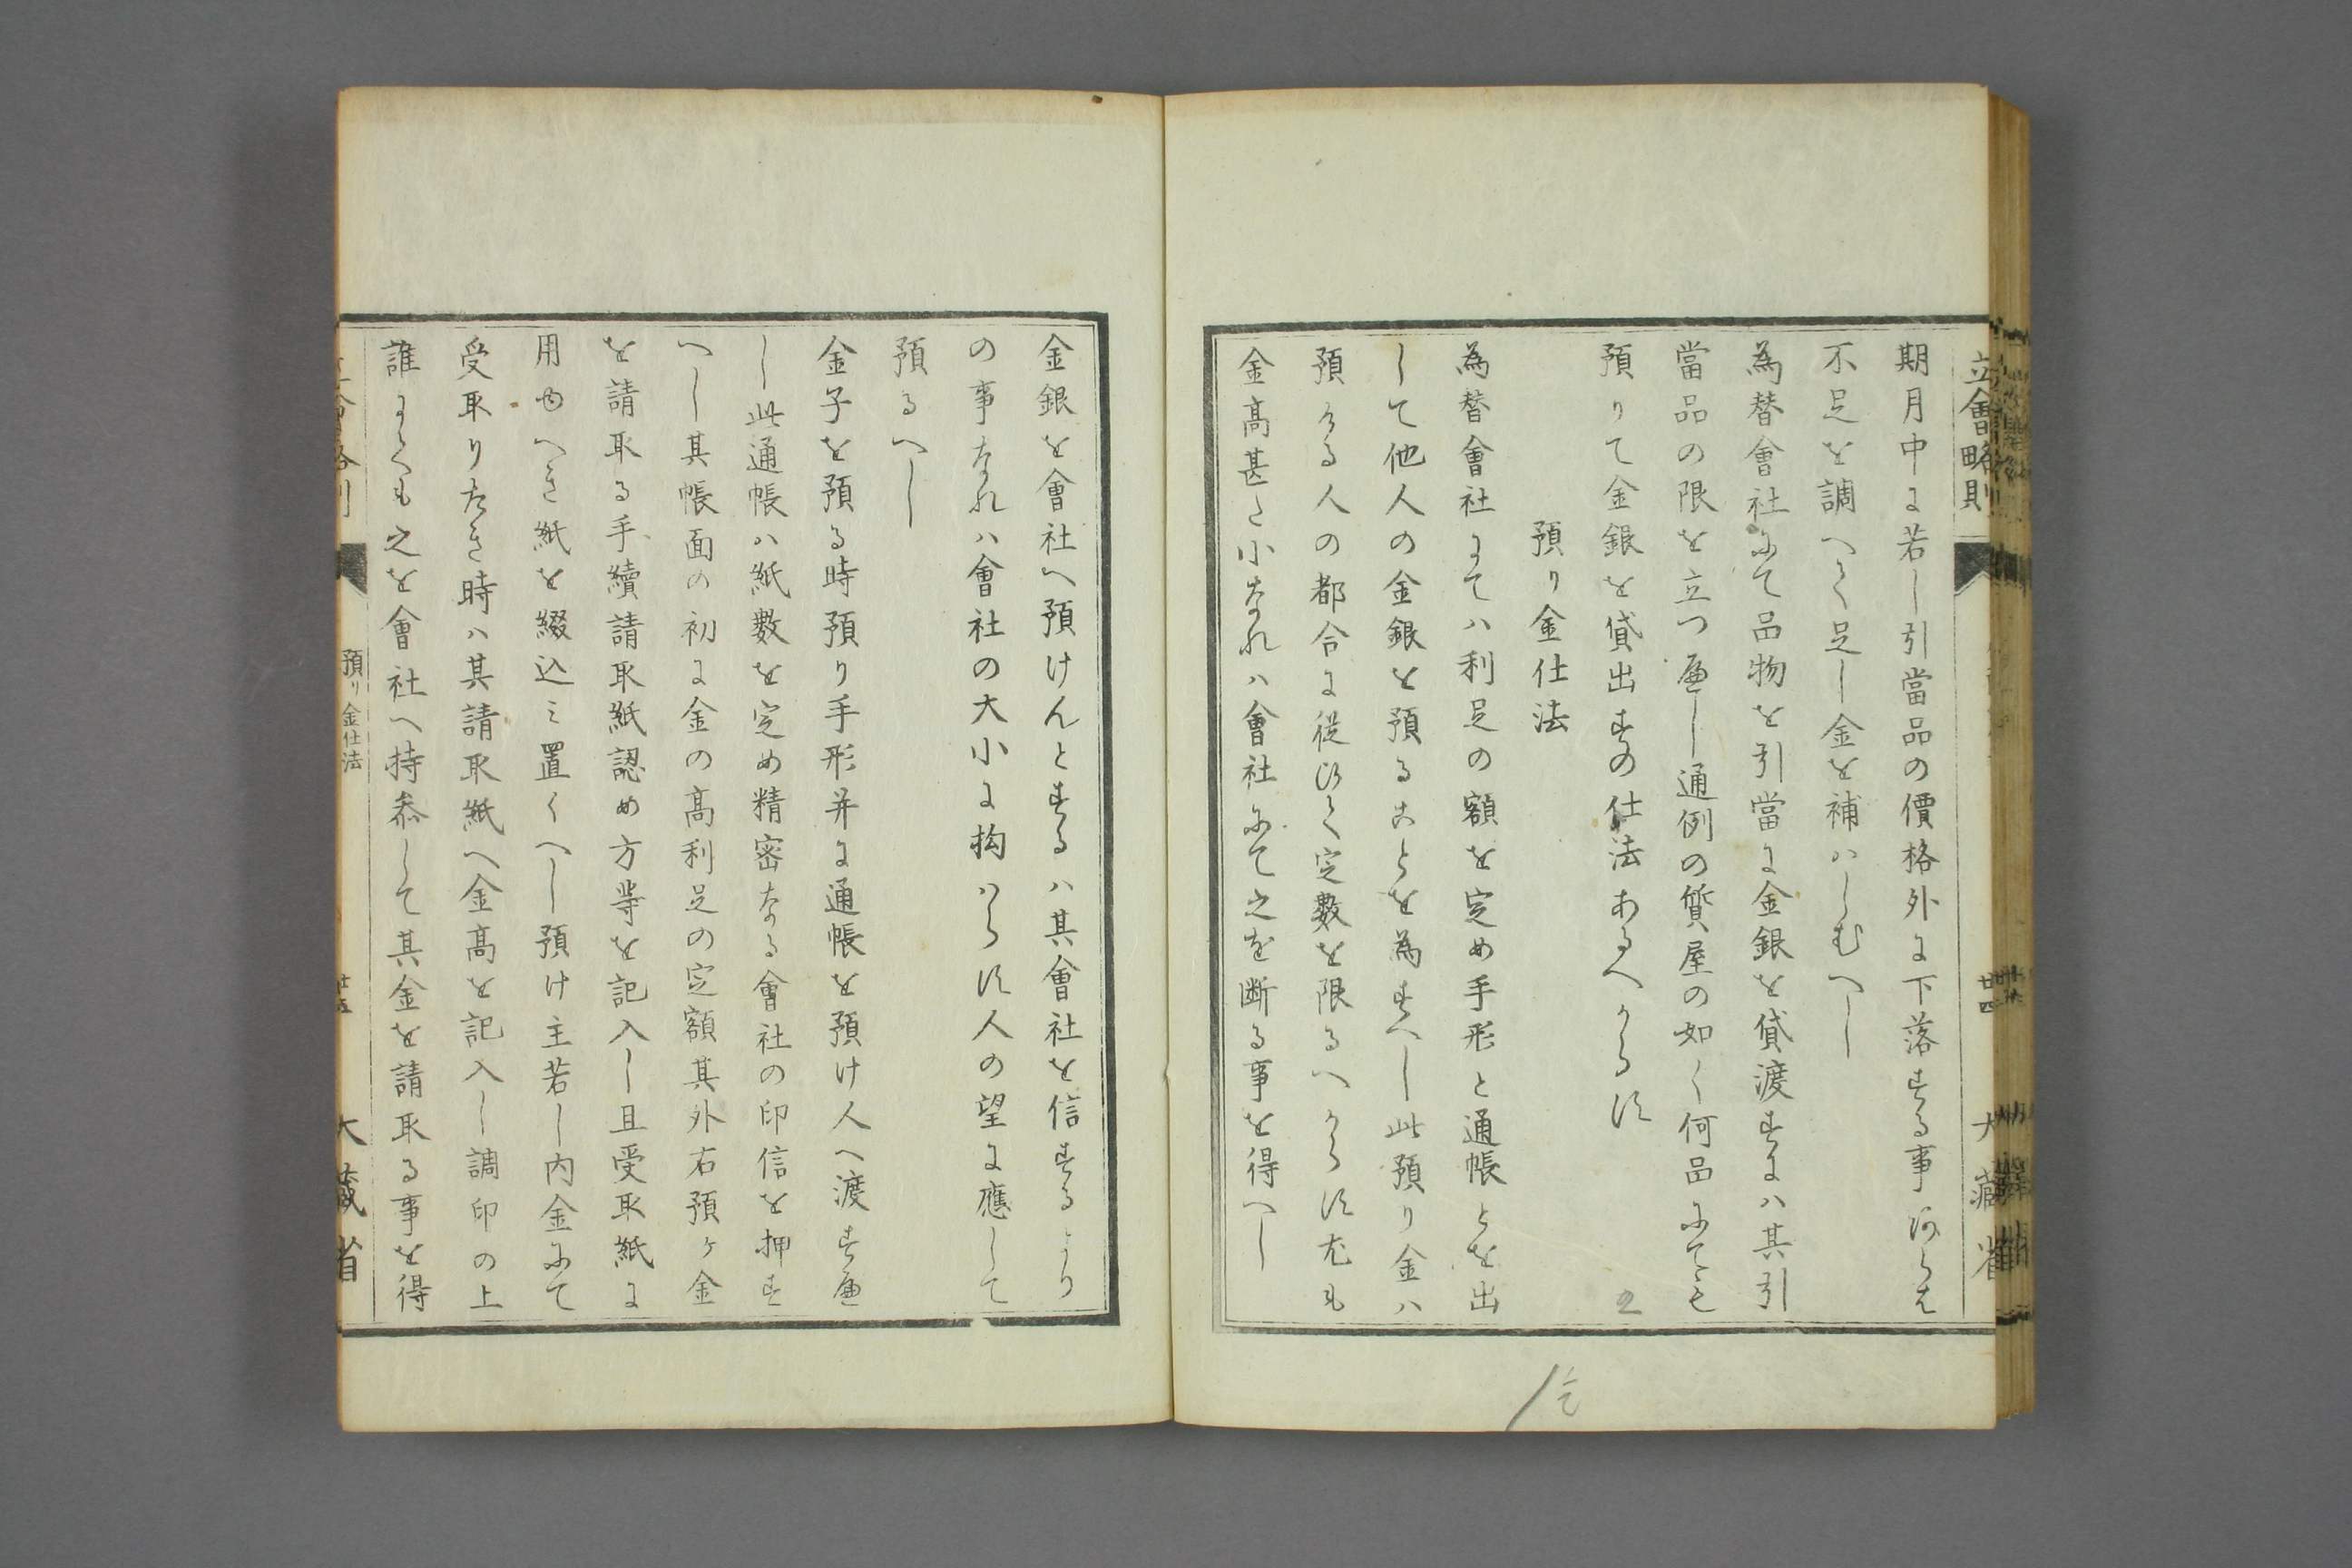 立會略則
廿四
大藏省
期月中に若し引當品の價格外に下落する事あらは
不足を調へて足し金を補ハしむへし
為替會社にて品物を引當に金銀を貸渡すにハ其引
當品の限を立つべし通例の質屋の如く何品にても
預りて金銀を貸出すの仕法あるへからす
預り金仕法
為替會社にてハ利足の額を定め手形と通帳とを出
して他人の金銀を預ることを為すへし此預り金ハ
預ける人の都合に従ひて定數を限るへからす尤も
金高甚た小なれハ會社にて之を断る事を得へし
金銀を會社へ預けんとするハ其會社を信するより
の事なれハ會社の大小に拘ハらす人の望に應して
預るへし
金子を預る時預り手形并に通帳を預け人へ渡すべ
し此通帳ハ紙數を定め精密なる會社の印信を押す
へし其帳面の初に金の高利足の定額其外右預ケ金
を請取る手續請取紙認め方等を記入し且受取紙に
用ゆへき紙を綴込ミ置くへし預け主若し内金にて
受取りたき時ハ其請取紙へ金高を記入し調印の上
誰にても之を會社へ持参して其金を請取る事を得
預り金仕法
廿五
大藏省